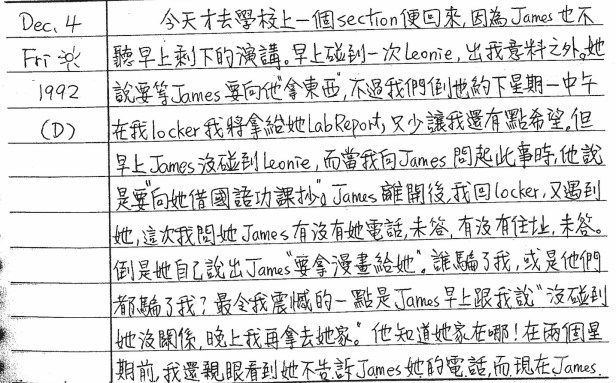 Dec. 4 今天才去學校上一個section便回來,因為James也不
Fri ☼ 聽早上剩下的演講。早上碰到一次Leonie,出我意料之外,她
1992 說要等James要向他"拿東西",不過我們倒也約下星期一中午
(D) 在我locker我將拿給她Lab Report,又少讓我還有點希望。但
早上James沒碰到Leonie,而當我向James問起此事時,他說
是要"向她借國語功課抄"。James離開後,我回locker,又遇到
她,這次我問她James有沒有她電話,未答,有沒有住址,未答。
倒是她自己說出James"要拿漫畫給她"。誰騙了我,或是他們
都騙了我?最令我震憾的一點是James早上跟我說"沒碰到
她沒關係,晚上我再拿去她家。"他知道她家在哪!在兩個星
期前,我還親眼看到她不告訴James她的電話,而現在James